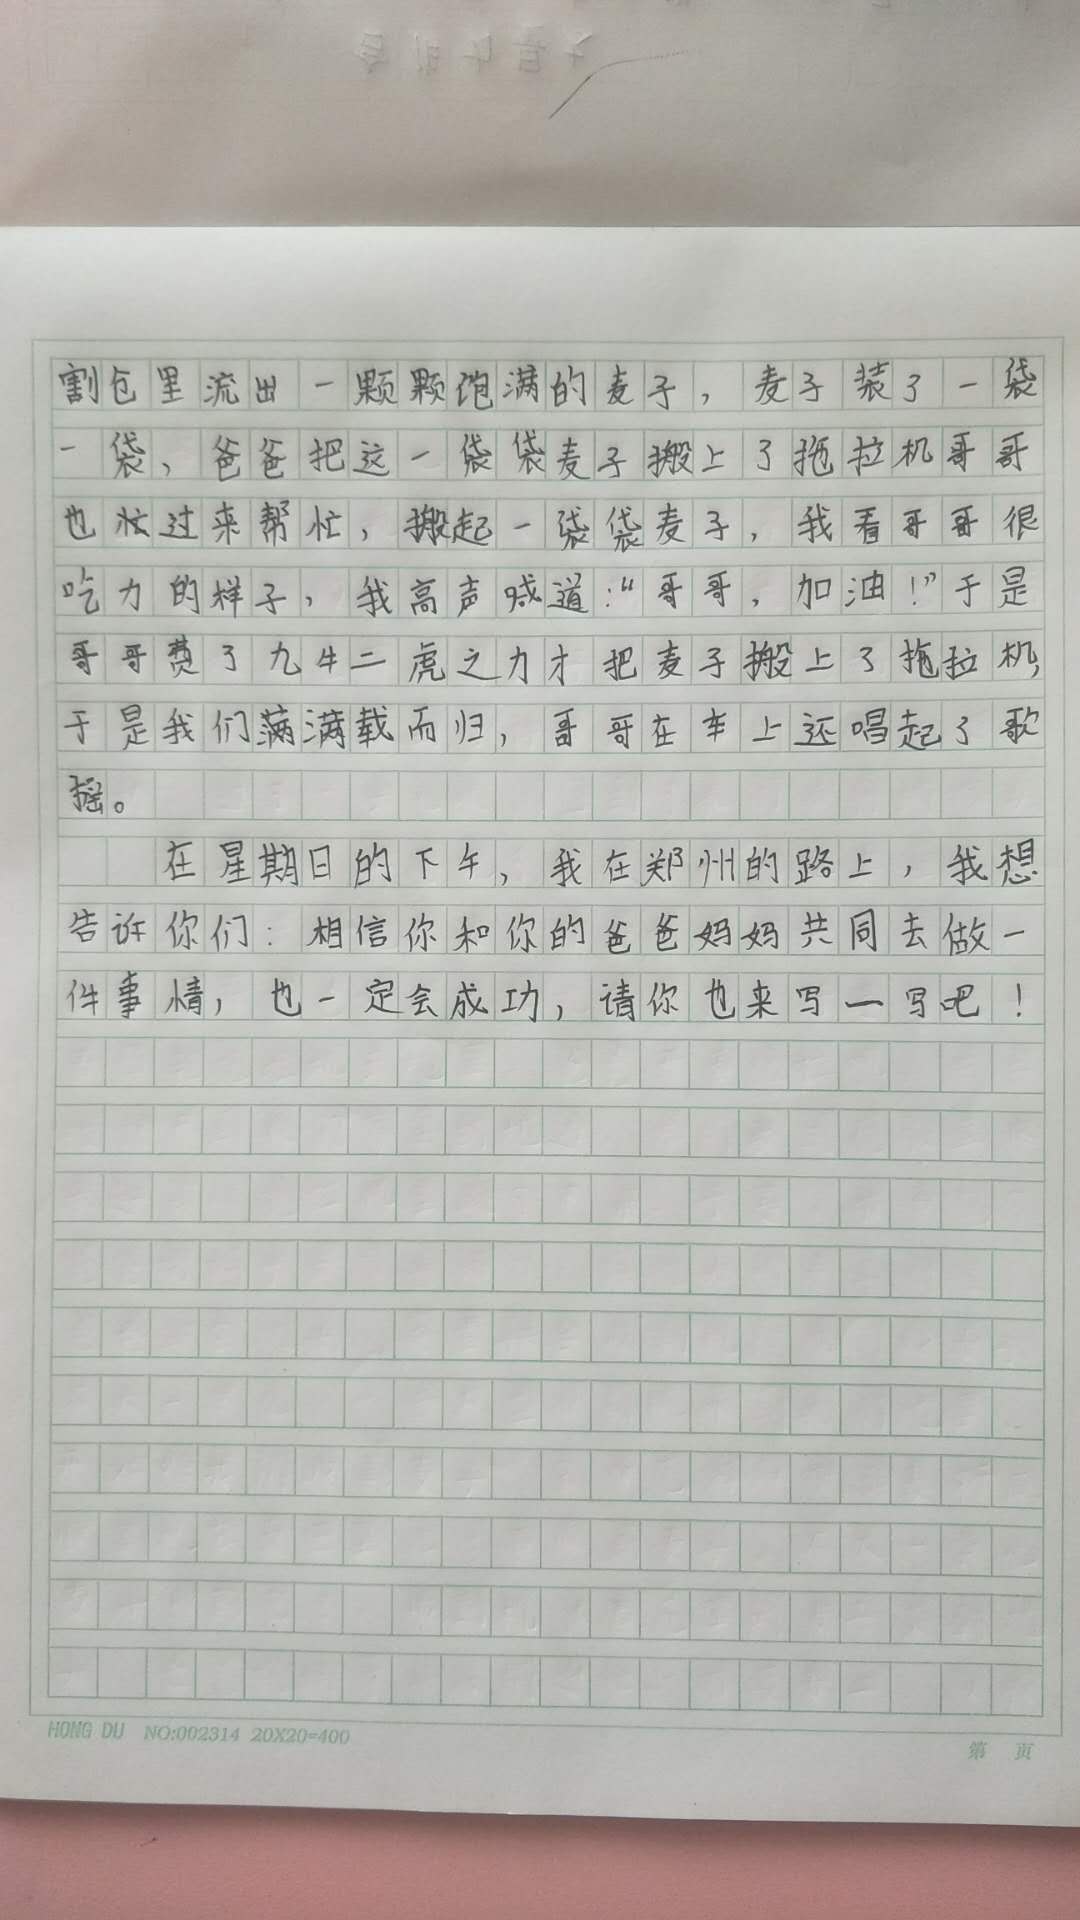 割仓里流出一颗颗饱满的麦子，麦子装了一袋
一袋，爸爸把这一袋袋麦子搬上了拖拉机哥哥
也忙过来帮忙，搬起一袋袋麦子，我看哥哥很
吃力的样子，我高声喊道：“哥哥，加油！”于是
哥哥费了九牛二虎之力才把麦子搬上了拖拉机，
于是我们满满载而归，哥哥在车上还唱起了歌
摇。
在星期日的下午，我在郑州的路上，我想
告诉你们：相信你和你的爸爸妈妈共同去做一
件事情，也一定会成功，请你也来写一写吧！
HONG DU NO:002314 20X20=400
第 页